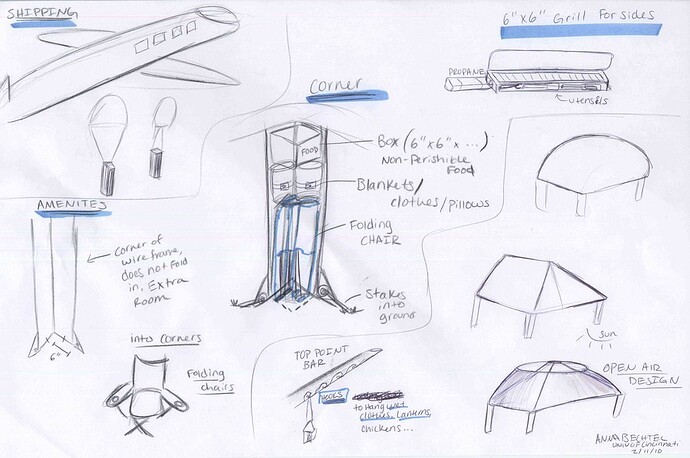 SHIPPING
6"x6" Grill For sides
PROPANE
utensils
CORNER
FOOD
Box (6"x6"x ...)
Non-Perishible
Food
Blankets/
clothes/Pillows
Folding
CHAIR
Stakes
into
ground
AMENITES
Corner of
wire frame,
does not Fold
in, Extra
Room
6"
into corners
Folding
chairs
TOP POINT
BAR
HOOKS
to Hang wet
clothes, Lanterns,
chickens...
sun
OPEN AIR
DESIGN
ANNA BECHTEL
Univ of Cincinnati
2/11/10